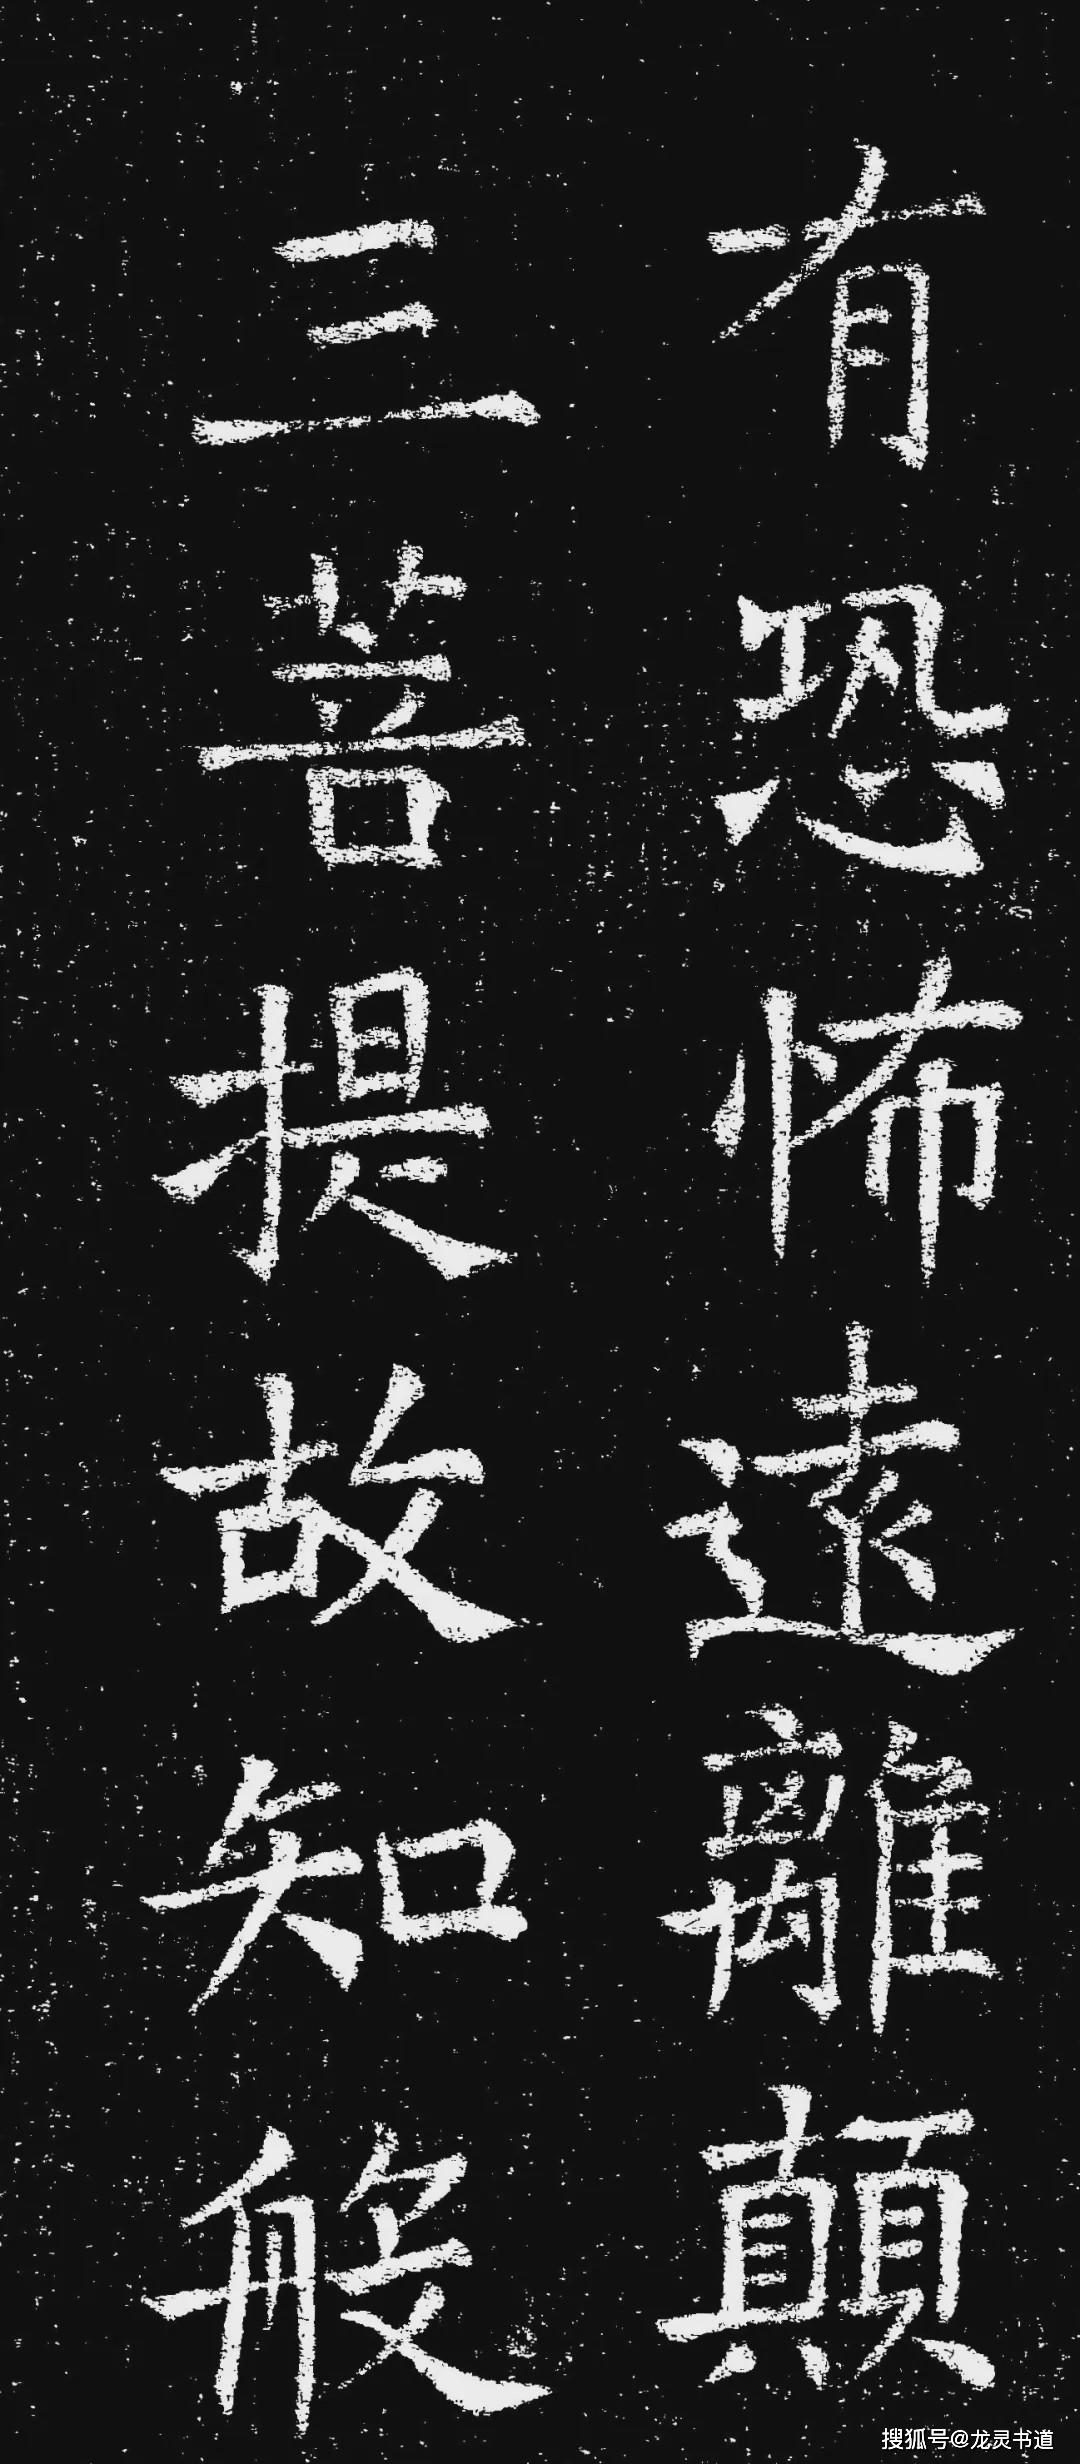 有恐怖遠離顛
三菩提故知般
搜狐号@龙灵书道